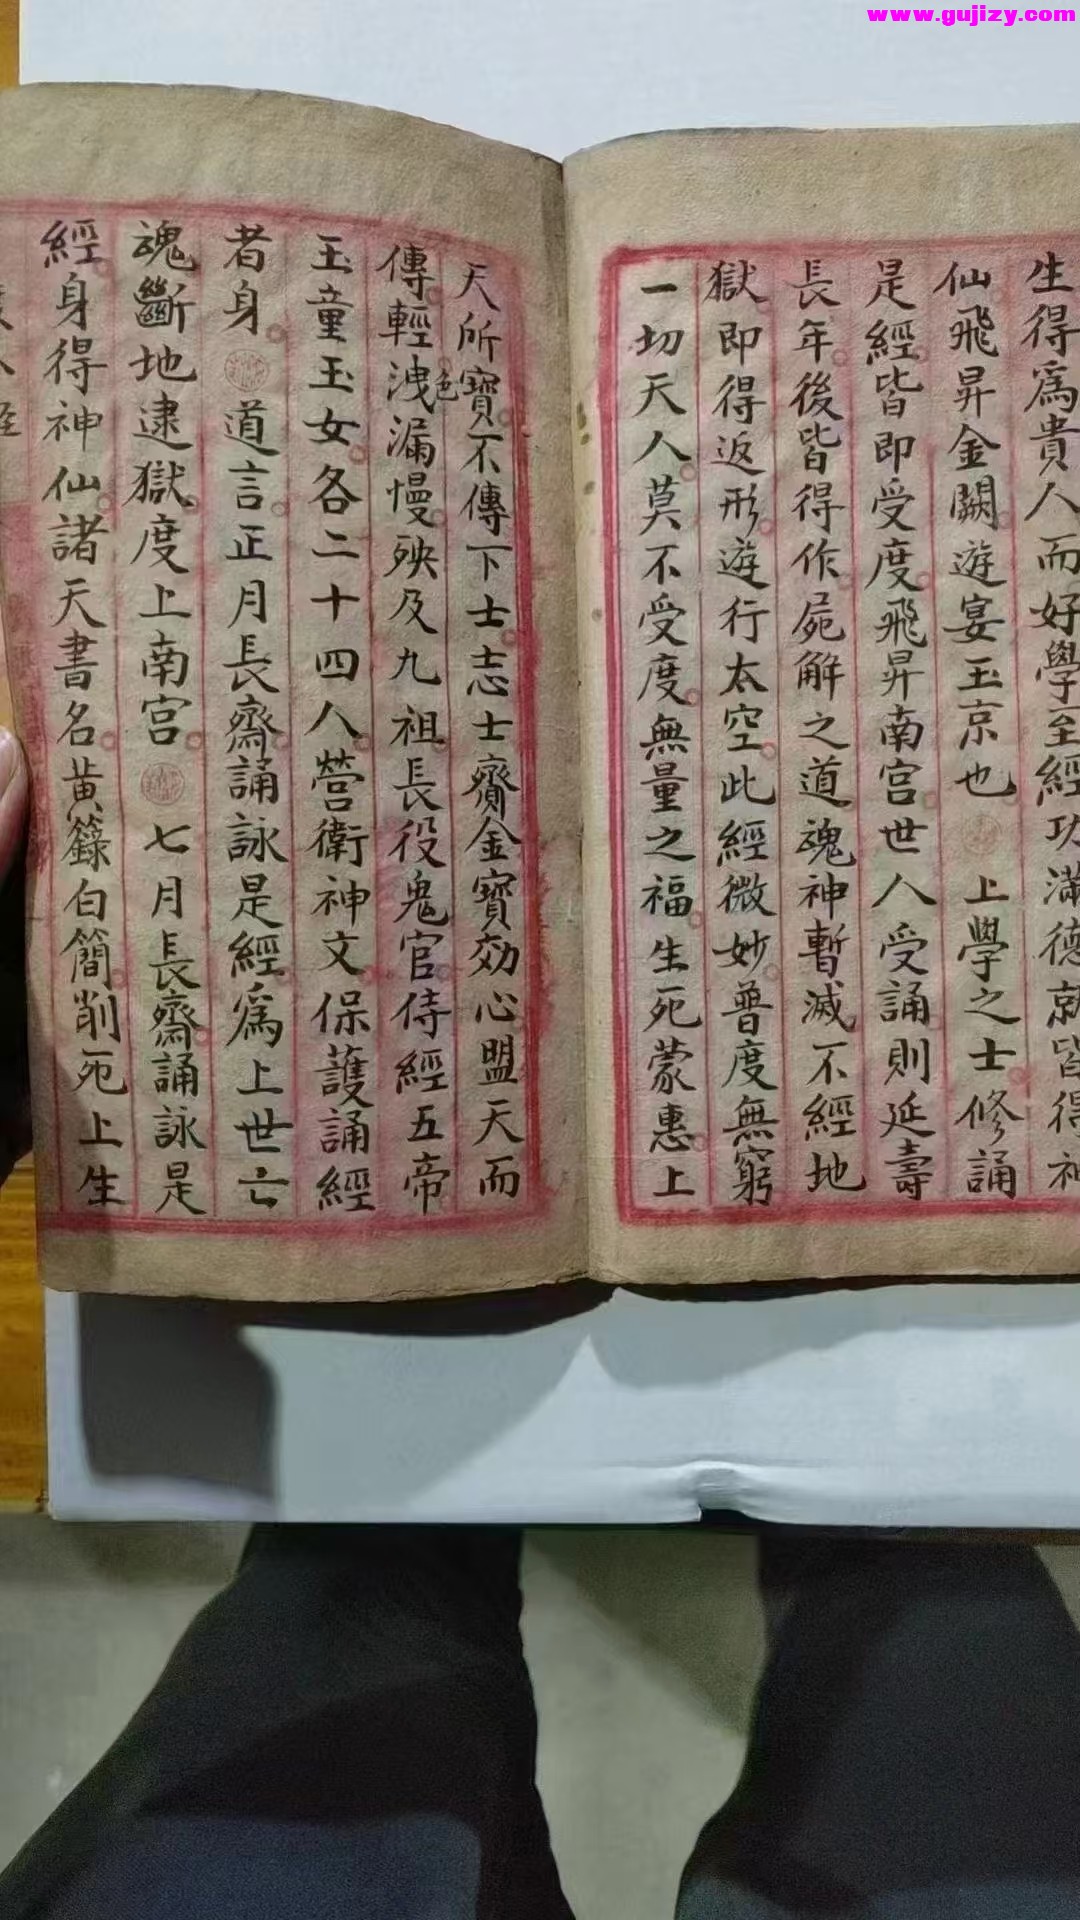 www.gujizy.com
生得爲貴人而好學至經功滿德就皆得神
仙飛昇金闕遊宴玉京也 上學之士修誦
是經皆即受度飛昇南宮世人受誦則延壽
長年後皆得作屍解之道魂神暫滅不經地
獄即得返形遊行太空此經微妙普度無窮
一切天人莫不受度無量之福生死蒙惠上
天所寶不傳下士志士齎金寶効心盟天而
傳輕洩漏慢殃及九祖長役鬼官侍經五帝
玉童玉女各二十四人營衛神文保護誦經
者身 道言正月長齋誦詠是經爲上世亡
魂斷地逮獄度上南宮 七月長齋誦詠是
經身得神仙諸天書名黃籙白簡削死上生